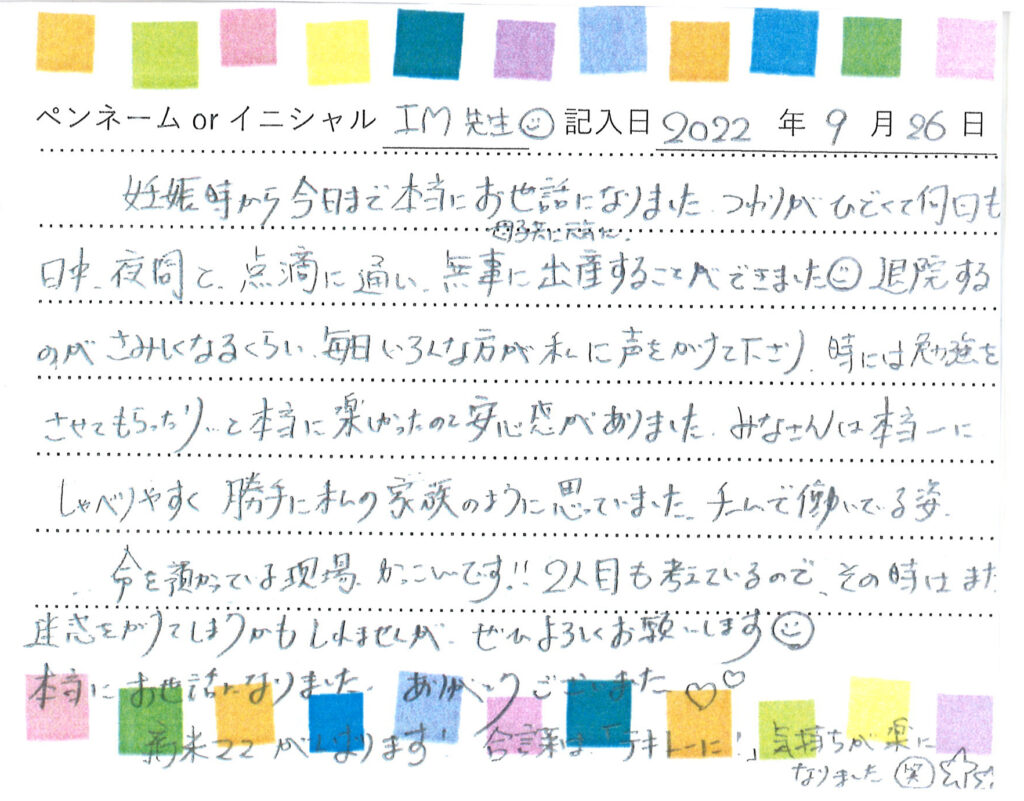 ペンネーム or イニシャル IM 先生 記入日 2022 年 9 月 26 日
妊娠時から今日まで本当にお世話になりました。つわりがひどくて何日も
日中、夜間と、点滴に通い、無事に出産することができました 退院する
のがさみしくなるくらい、毎日いろんな方が私に声をかけて下さり、時には勉強を
させてもらったり…と本当に楽しかったので安心感がありました。みなさんは本当ーに
しゃべりやすく 勝手に私の家族のように思っていました。チームで働いている姿、
命を預かっている現場、かっこいいです!! 2人目も考えているので、その時はまた
迷惑をかけてしまうかもしれませんが、ぜひよろしくお願いします
本当にお世話になりました。ありがとうございました♡♡
新米ママがんばります! 合言葉は「テキトーに!」気持ちが楽に
なりました (笑)